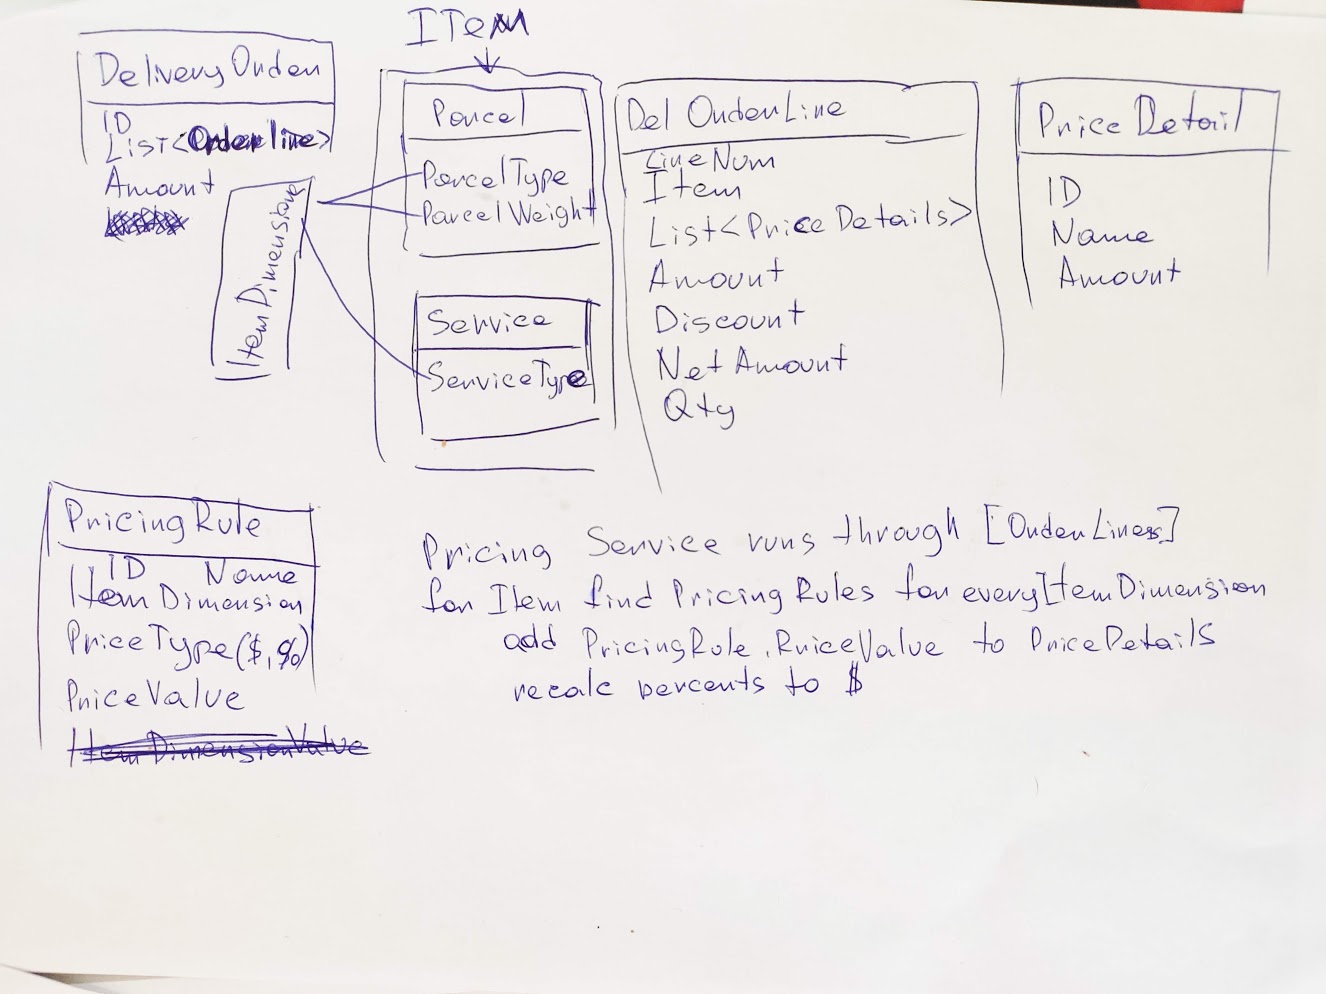 ITem
DeliveryOrder
ID
List<Orderline>
Amount
ItemDimensions
Parcel
ParcelType
ParcelWeight
Service
ServiceType
Del OrderLine
LineNum
Item
List<Price Details>
Amount
Discount
Net Amount
Qty
Price Detail
ID
Name
Amount
PricingRule
ID Name
ItemDimension
PriceType($,%)
PriceValue
ItemDimensionValue
Pricing Service runs through [OrderLines]
for Item find PricingRules for every ItemDimension
add PricingRule.PriceValue to PriceDetails
recalc percents to $